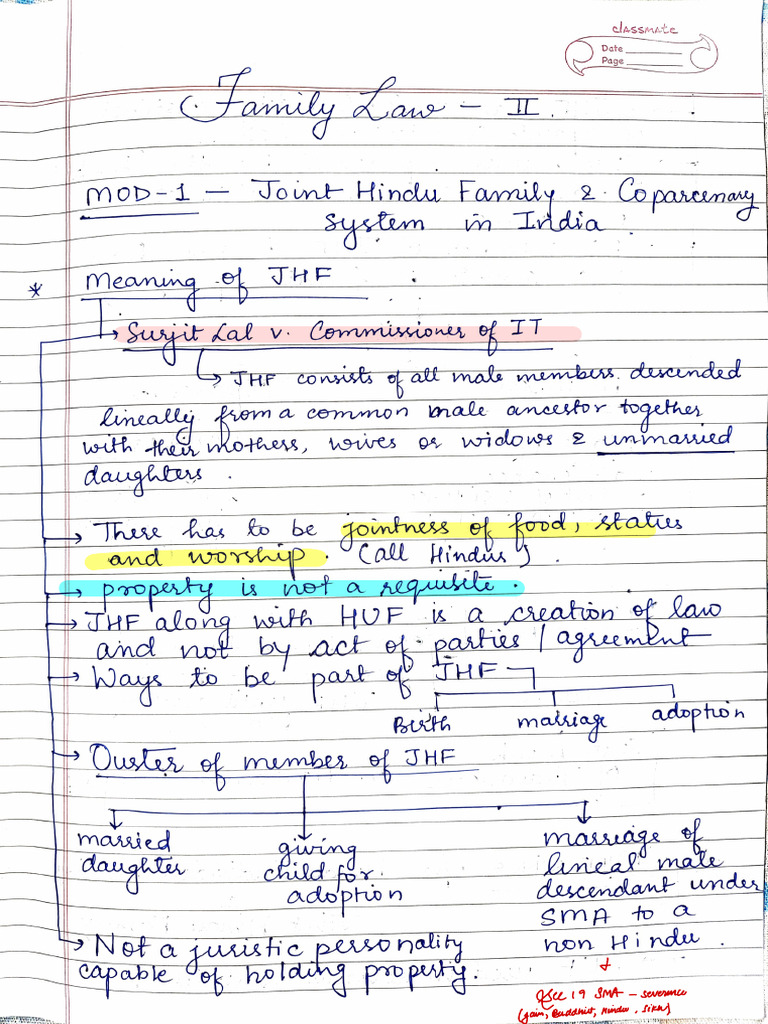 classmate
Date
Page
Family Law - II
MOD-1 - Joint Hindu Family & Coparcenary
System in India
* Meaning of JHF
Surjit Lal v. Commissioner of IT
JHF consists of all male members descended
lineally from a common male ancestor together
with their mothers, wives or widows & unmarried
daughters.
There has to be jointness of food, status
and worship. (all Hindus)
property is not a requisite.
JHF along with HUF is a creation of law
and not by act of parties / agreement
Ways to be part of JHF
Birth marriage adoption
Ouster of member of JHF
married giving marriage of
daughter child for lineal male
adoption descendant under
SMA to a
Not a juristic personality non Hindu.
capable of holding property.
Sec 19 SMA - severance
(Jain, Buddhist, Hindu, Sikh)